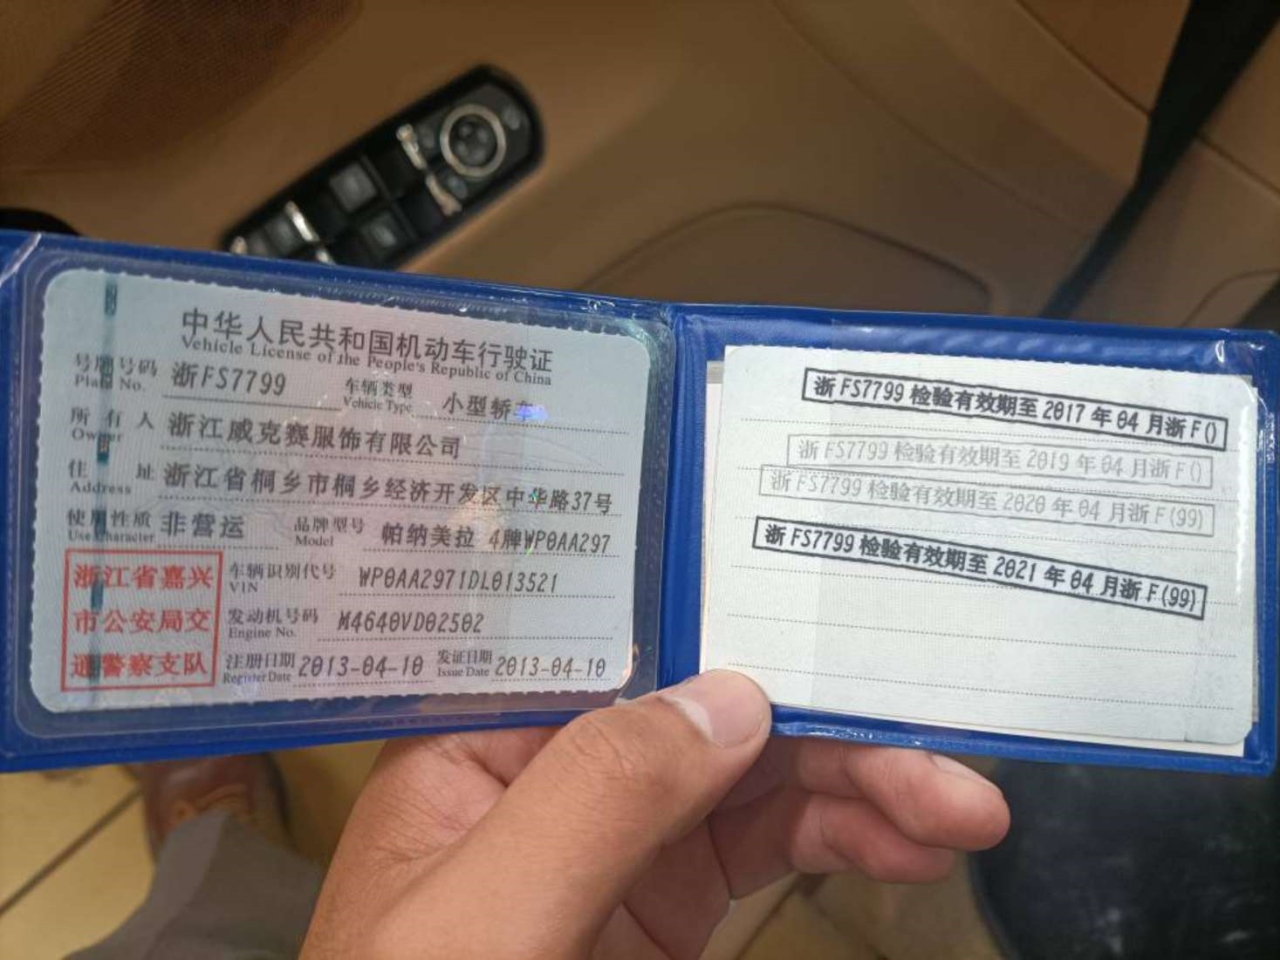 中华人民共和国机动车行驶证
Vehicle License of the People's Republic of China
号牌号码 浙FS7799 车辆类型 小型轿车
Plate No. Vehicle Type
所有人 浙江威克赛服饰有限公司
Owner
住址 浙江省桐乡市桐乡经济开发区中华路37号
Address
使用性质 非营运 品牌型号 帕纳美拉 4牌WP0AA297
Use Character Model
浙江省嘉兴
市公安局交
通警察支队
车辆识别代号 WP0AA2971DL013521
VIN
发动机号码 M4640VD02502
Engine No.
注册日期 2013-04-10 发证日期 2013-04-10
Register Date Issue Date
浙FS7799检验有效期至2017年04月浙F()
浙FS7799检验有效期至2019年04月浙F()
浙FS7799检验有效期至2020年04月浙F(99)
浙FS7799检验有效期至2021年04月浙F(99)